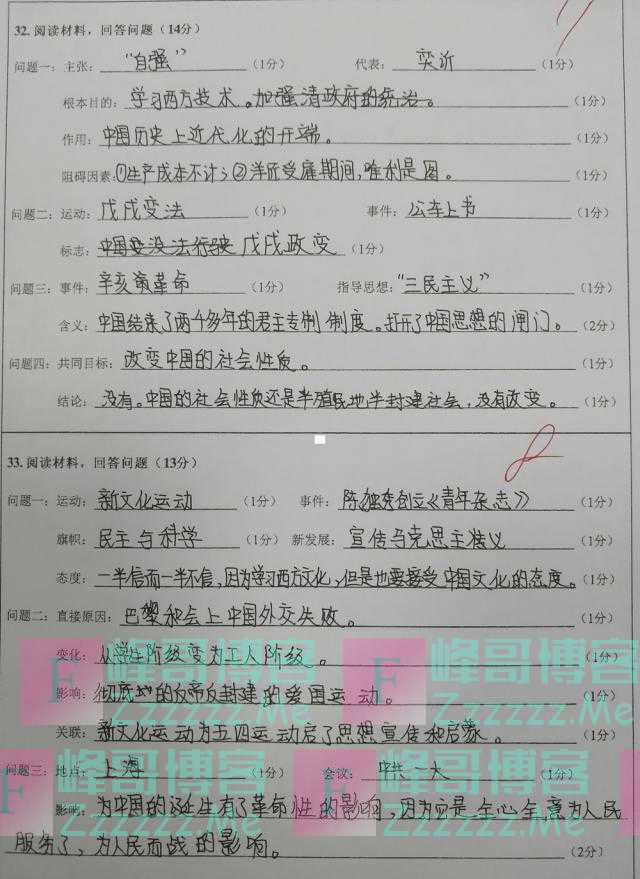 32. 阅读材料，回答问题（14分）
问题一：主张：“自强”（1分） 代表：奕䜣（1分）
根本目的：学习西方技术。加强清政府的统治。（1分）
作用：中国历史上近代化的开端。（1分）
阻碍因素：①生产成本不计；②洋匠受雇期间，唯利是图。（1分）
问题二：运动：戊戌变法（1分） 事件：公车上书（1分）
标志：戊戌政变（1分）
问题三：事件：辛亥革命（1分） 指导思想：“三民主义”（1分）
含义：中国结束了两千多年的君主专制制度。打开了中国思想的闸门。（2分）
问题四：共同目标：改变中国的社会性质。（1分）
结论：没有。中国的社会性质还是半殖民地半封建社会，没有改变。（1分）
33. 阅读材料，回答问题（13分）
问题一：运动：新文化运动（1分） 事件：陈独秀创立《青年杂志》（1分）
旗帜：民主与科学（1分） 新发展：宣传马克思主义（1分）
态度：一半信而一半不信，因为学习西方文化，但是也要接受中国文化的态度。（1分）
问题二：直接原因：巴黎和会上中国外交失败。（1分）
变化：从学生阶级变为工人阶级。（1分）
影响：彻底的反帝反封建的爱国运动。（1分）
关联：新文化运动为五四运动启了思想宣传和启蒙。（1分）
问题三：地点：上海（1分） 会议：中共一大（1分）
影响：为中国的诞生有了革命性的影响，因为它是全心全意为人民
服务了，为人民而战的影响。（2分）
峰哥博客
Zzzzzz.Me
峰哥博客
Zzzzzz.Me
峰哥博客
Zzzzzz.Me
峰哥博客
Zzzzzz.Me